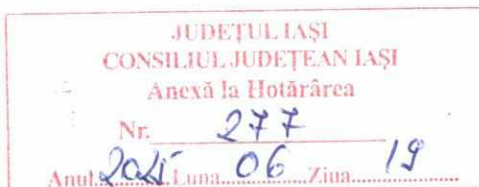 JUDEȚUL IAȘI
CONSILIUL JUDEȚEAN IAȘI
Anexă la Hotărârea
Nr. 277
Anul 2025 Luna 06 Ziua 19